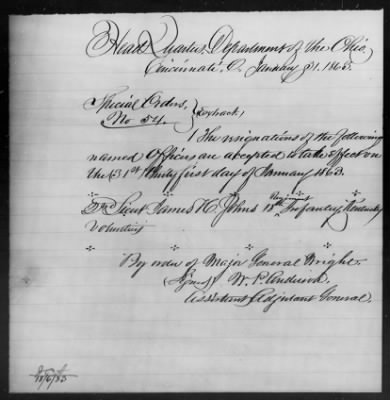 Head Quarters, Department of the Ohio,
Cincinnati, O. January 31. 1863.
Special Orders,
No 54.
(Extract)
1 The resignations of the following
named Officers are accepted to take effect on
the (31st) thirty first day of January 1863.
2nd Lieut James H. Johns 18th Regiment Infantry Kentucky
Volunteers
By order of Major General Wright.
(Signed) W. P. Anderson.
Assistant Adjutant General.